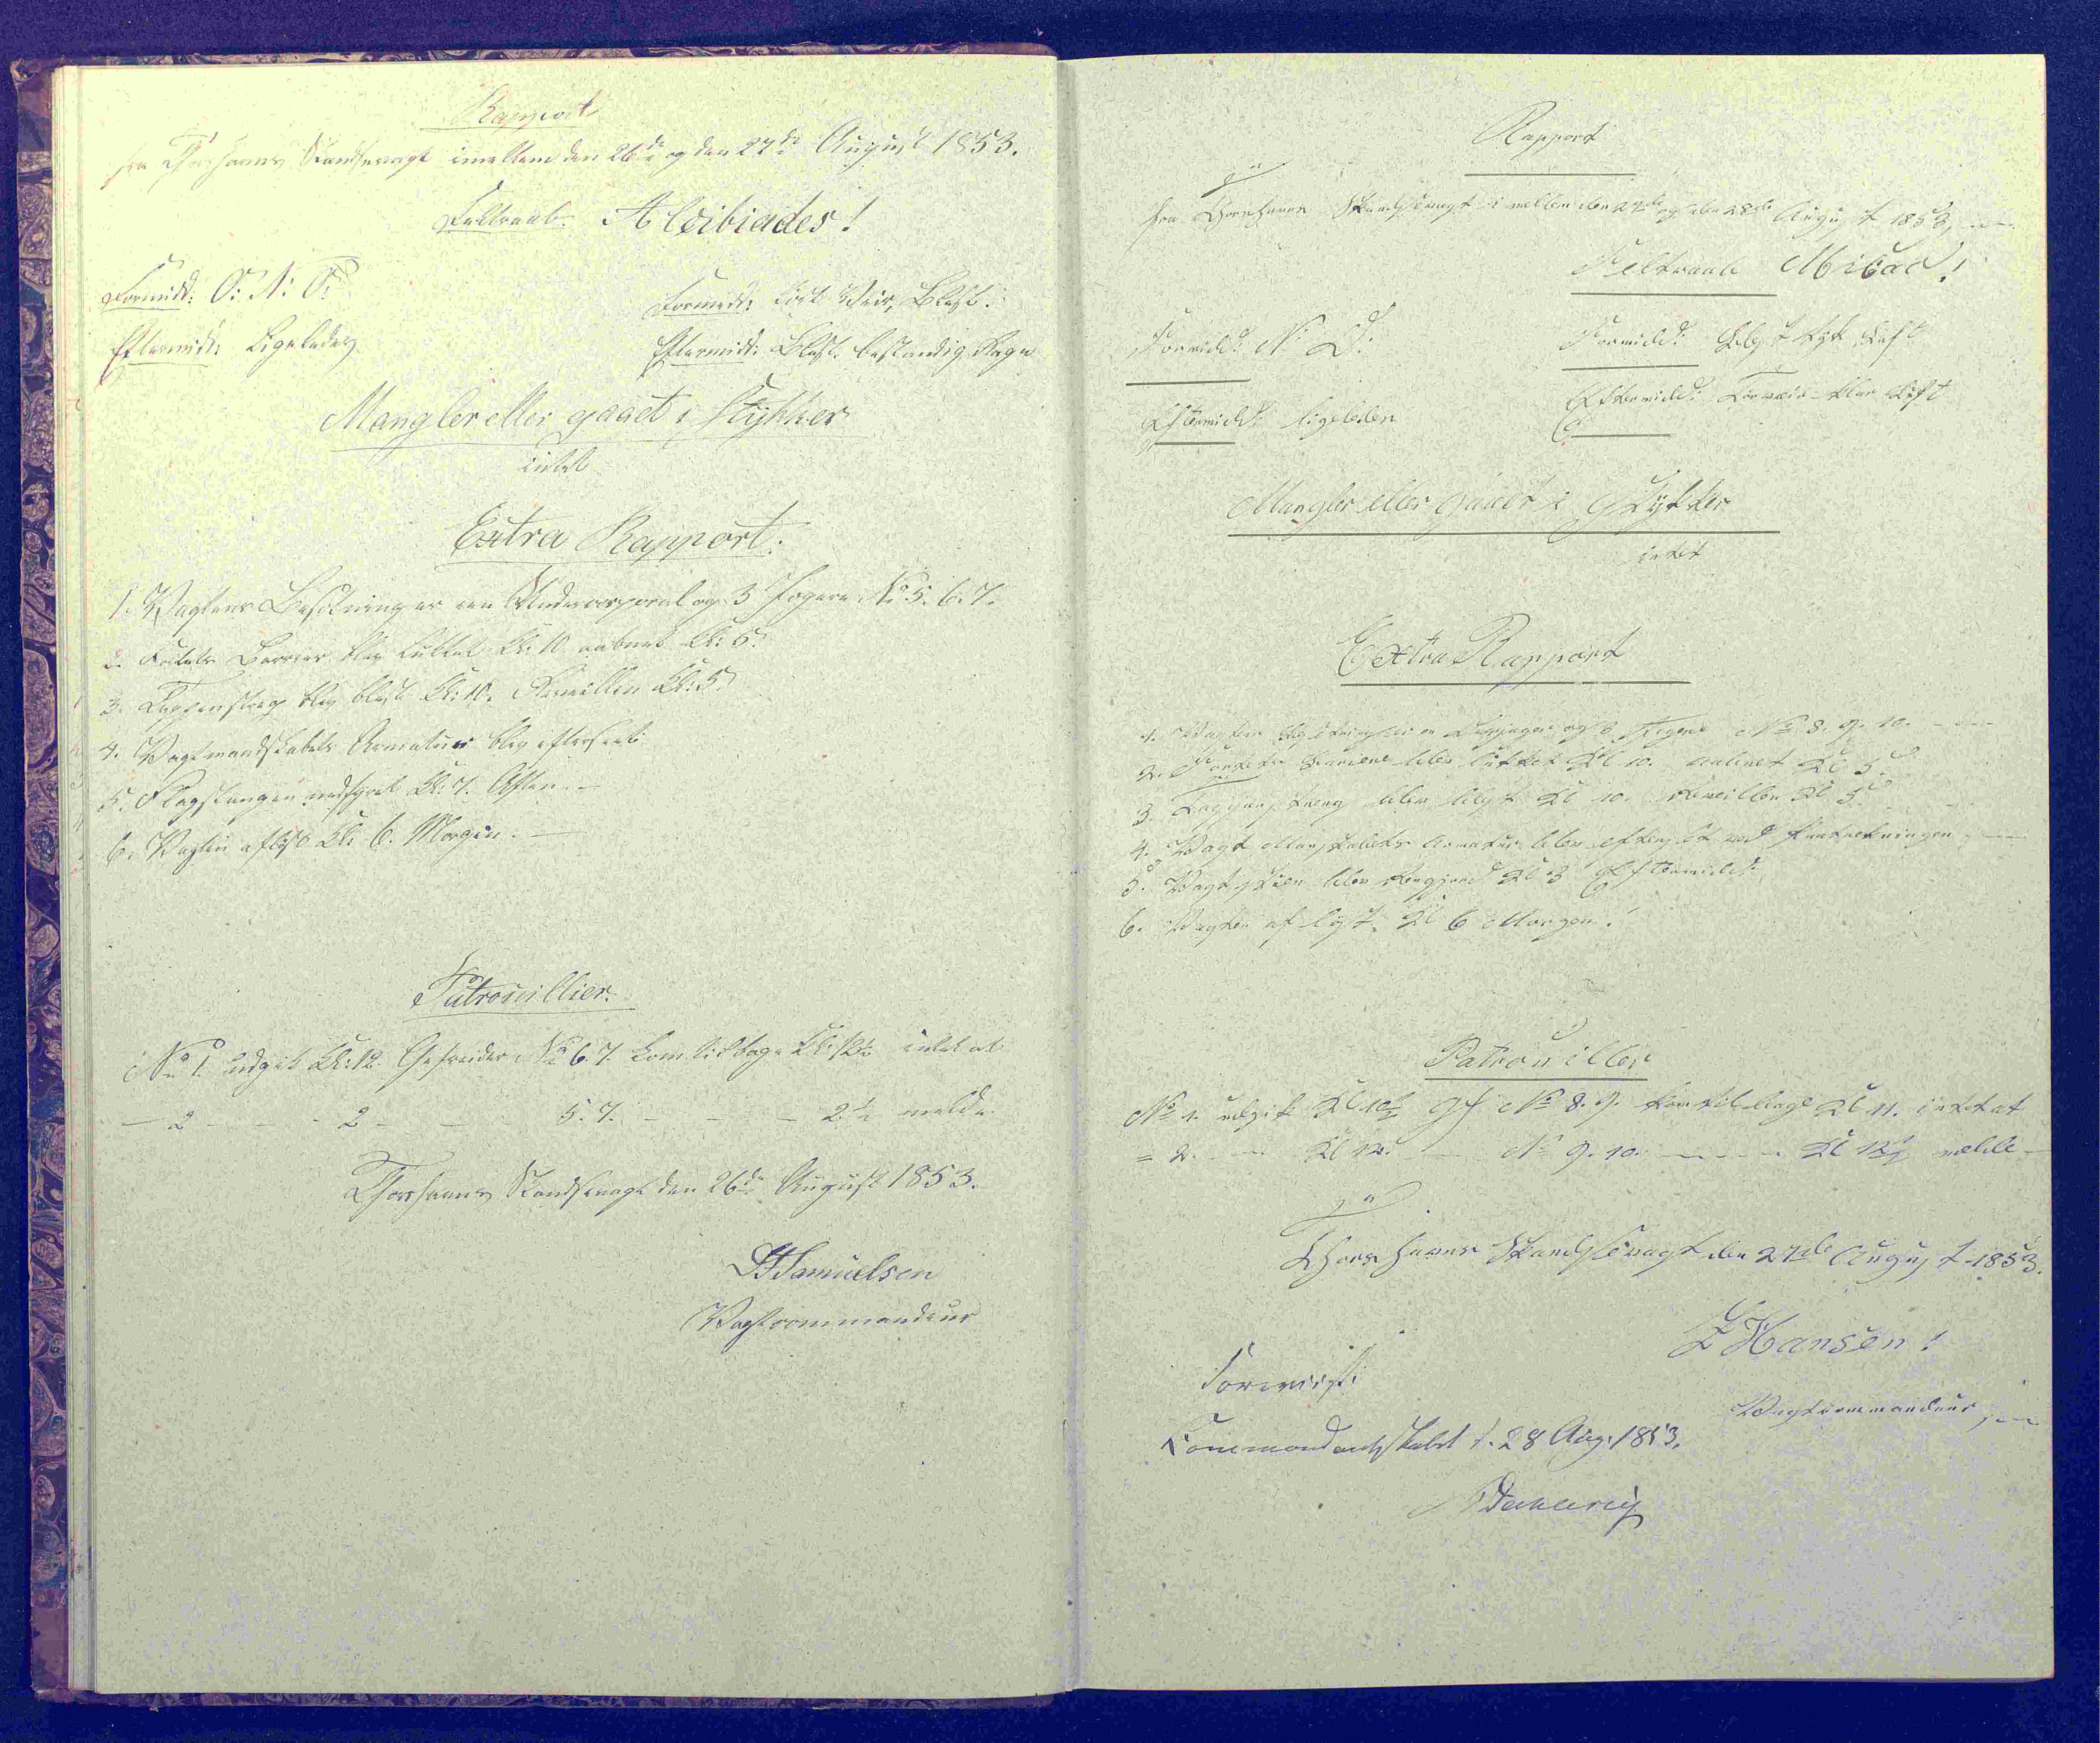 Rapport
fra Thorshavns Skandsevagt imellem den 26de og den 27de August 1853.
Feltraab. Alcibiades!
Formidd: O: N: O:
Formidd: Veir, Blæst.
Eftermidd: Ligeledes
Eftermidd: Blæst. bestandig Regn
Mangler eller gaaet i Stykker
intet
Extra Rapport.
1. Vagtens Besætning er en Undercorporal og 3 Jægere No 5. 6. 7.
2. Fortets Barriere blev lukket Kl: 10 aabnet Kl: 5.
3. Tappenstreg blev blæst Kl: 10. Reveillen Kl: 5.
4. Vagtmandskabets Armatur blev efterseet
5. Flagstangen nedfiret Kl: 7. Aften. –
6. Vagten afløst Kl: 6. Morgen. –
Patrouillier.
No 1. udgik Kl: 12. Gefreider No 6. 7. kom tilbage Kl: 12½ intet at
– 2 – – – 2 – – 5. 7. – – – 2½ melde.
Thorshavns Skandsevagt den 26de August 1853.
Samuelsen
Vagtcommandeur
Rapport
fra Thorshavns Skandsevagt i mellem den 27de og den 28de August 1853
Feltraab Abibad!
Formidd: N: O:
Formidd: Blæst tyk Luft
Eftermidd: ligeleden
Eftermidd: Tørveir klar Luft
Mangler eller gaaet i Stykker
intet
Extra Rapport
1. Vagten Besætning er en og 3 Jægere No 8. 9. 10.
2. Fortets Barriere blev lukket Kl 10. aabnet Kl 5.
3. Tappenstreng blev blæst Kl 10. Reveillen Kl 5.
4. Vagt Manskabets Armatur blev efterset ved
5. Vagtstuen blev Rengjord Kl 3 Eftermidd:
6. Vagten afløst. Kl 6 Morgen!
Patrouiller
No 1. udgik Kl 10½ Gf No 8. 9. kom tilbage Kl 11. intet at
= 2. – – Kl 12. – No 9. 10. – – – Kl 12½ melde –
Thorshavns Skandsevagt den 27de August 1853.
Hansen!
Vagtcommandeur
Foreviist
Commandantskabet d. 28 Aug. 1853.